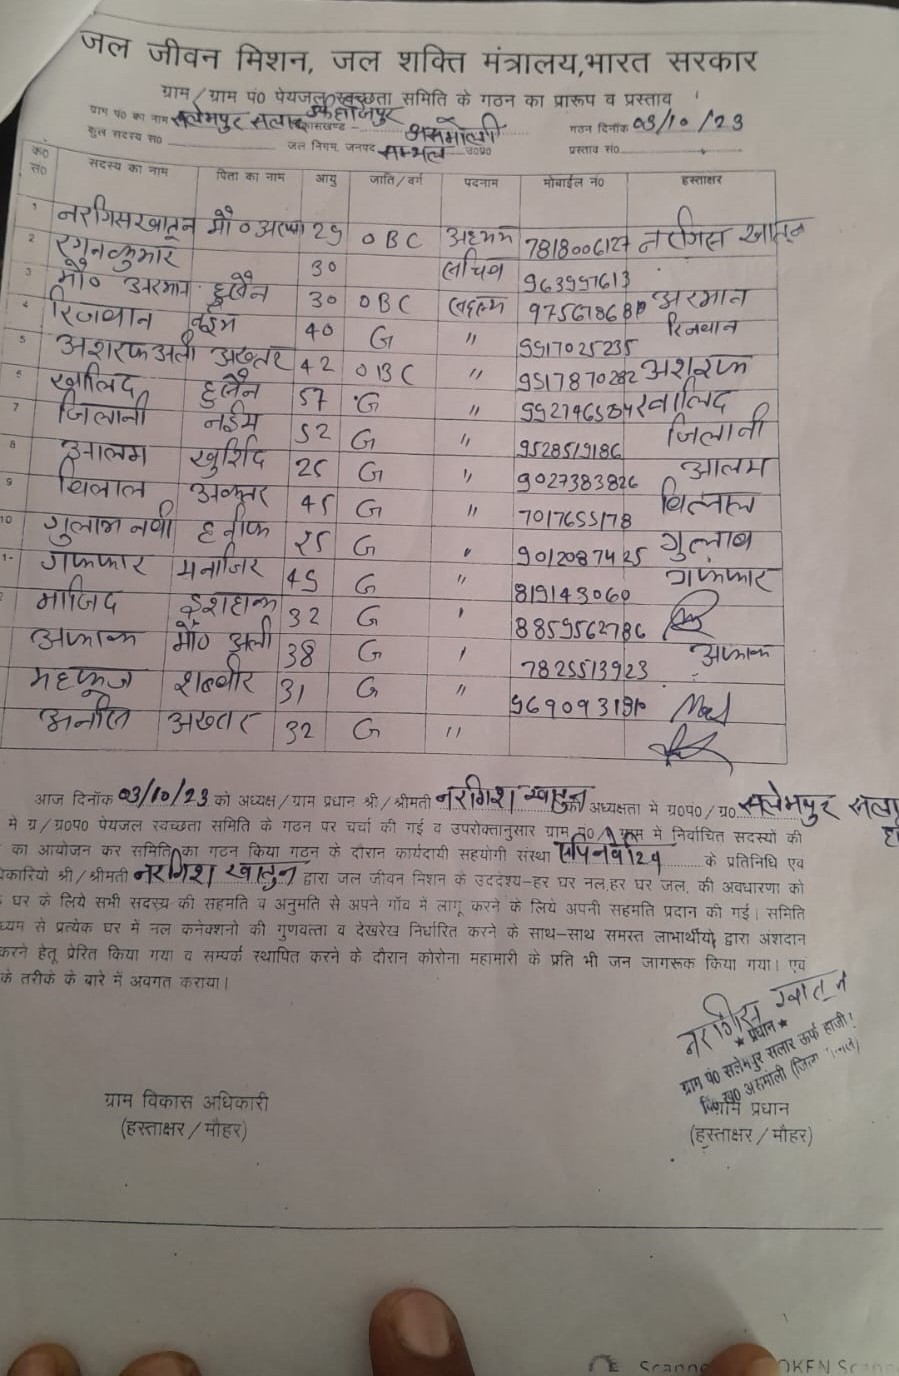 जल जीवन मिशन, जल शक्ति मंत्रालय,भारत सरकार
ग्राम/ग्राम पं0 पेयजल स्वच्छता समिति के गठन का प्रारूप व प्रस्ताव
ग्राम पं0 का नाम सलेमपुर सलार उर्फ हाजीपुर विकासखण्ड - असमोली गठन दिनॉक 03/10/23
कुल सदस्य सं0 जल निगम, जनपद सम्भल उ0प्र0 प्रस्ताव सं0
क0 सं0 सदस्य का नाम पिता का नाम आयु जाति/वर्ग पदनाम मोबाईल नं0 हस्ताक्षर
1 नरगिस खातून मौ0 29 OBC अध्यक्ष 7818006127 नरगिस खातून
2 कुमार 30 सचिव 9639997613
3 मौ० अरमान हुसैन 30 OBC सदस्य अरमान
4 रिजवान नईम 40 G " 9917025235 रिजवान
5 अशरफ अली अख्तर 42 OBC " 9517870282 अशरफ
6 खालिद हुसैन 57 G " खालिद
7 जिलानी नईम 52 G " 9528519186 जिलानी
8 आलम खुर्शिद 25 G " 9027383826 आलम
9 बिलाल अख्तर 45 G " 7017655178 बिलाल
10 गुलाम नबी हनीफ 25 G " 9012087425 गुलाब
गफ्फार मनाजिर 45 G " 819143060 गफ्फार
माजिद इशहाक 32 G ' 8859562786
अफाक मौ० अली 38 G ' 7825513923 अफाक
महफूज शब्बीर 31 G "
अनीस अख्तर 32 G "
आज दिनॉक 03/10/23 को अध्यक्ष/ग्राम प्रधान श्री/श्रीमती नरगिश खातुन की अध्यक्षता मे ग्र0प0/ग्र0 सलेमपुर सला
मे ग्र/ग्र0प0 पेयजल स्वच्छता समिति के गठन पर चर्चा की गई व उपरोक्तानुसार ग्राम पं0/ग्राम में निर्वाचित सदस्यों की
का आयोजन कर समिति का गठन किया गठन के दौरान कार्यदायी सहयोगी संस्था के प्रतिनिधि एव
कारियो श्री/श्रीमती नरगिश खातुन द्वारा जल जीवन मिशन के उददेश्य-हर घर नल,हर घर जल, की अवधारणा को
घर के लिये सभी सदस्य की सहमति व अनुमति से अपने गॉव में लागू करने के लिये अपनी सहमति प्रदान की गई। समिति
ध्यम से प्रत्येक घर में नल कनेक्शनो की गुणवत्ता व देखरेख निर्धारित करने के साथ-साथ समस्त लाभार्थीयो द्वारा अंशदान
करने हेतू प्रेरित किया गया व सम्पर्क स्थापित करने के दौरान कोरोना महामारी के प्रति भी जन जागरूक किया गया। एवं
के तरीके के बारे में अवगत कराया।
नरगिस खातून
★ प्रधान ★
ग्राम पं0 सलेमपुर सलार ऊर्फ हाजी
वि0 ख0 असमोली (जिला
ग्राम विकास अधिकारी ग्राम प्रधान
(हस्ताक्षर/मौहर) (हस्ताक्षर/मौहर)